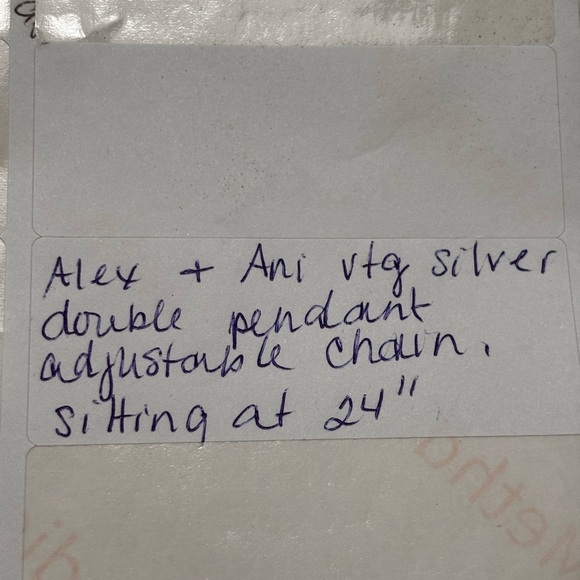 Alex + Ani vtg silver
double pendant
adjustable chain.
sitting at 24"